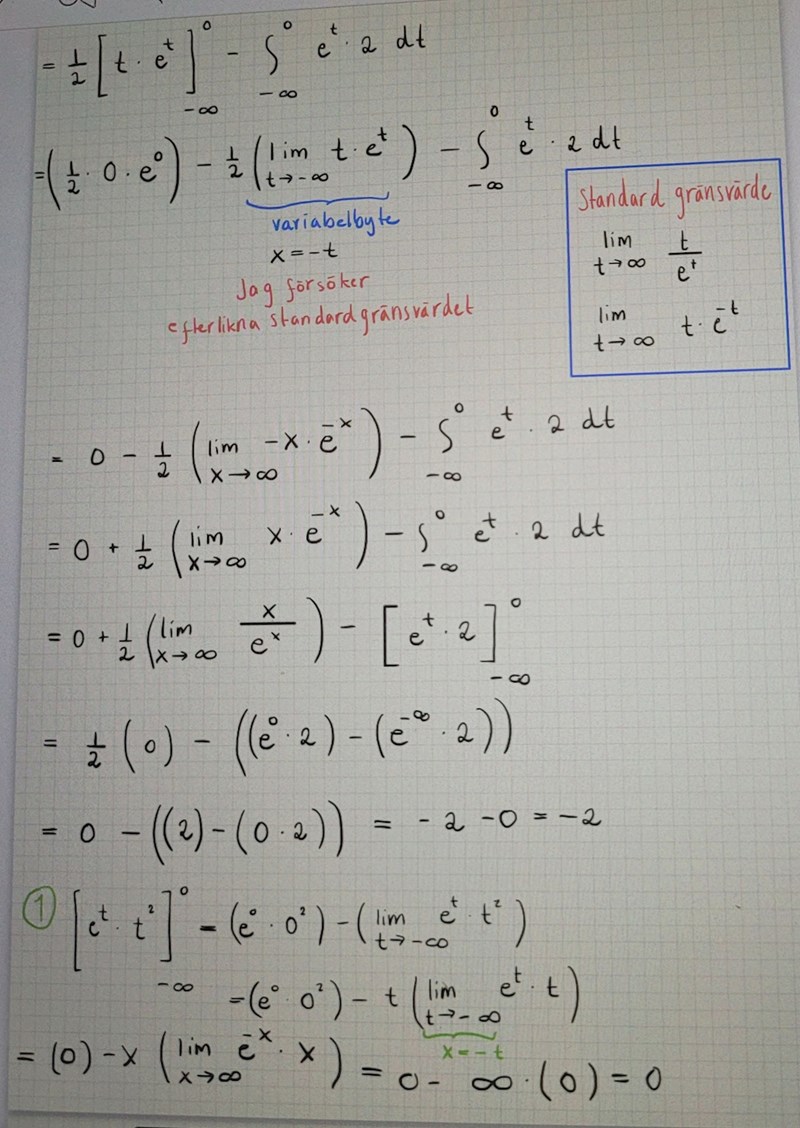 = 1/2 [t · e^t]_{-∞}^{0} - ∫_{-∞}^{0} e^t · 2 dt
= (1/2 · 0 · e^0) - 1/2 (lim_{t→-∞} t · e^t) - ∫_{-∞}^{0} e^t · 2 dt
variabelbyte
x = -t
Jag försöker
efterlikna standardgränsvärdet
Standard gränsvärde
lim_{t→∞} t/e^t
lim_{t→∞} t · e^{-t}
= 0 - 1/2 (lim_{x→∞} -x · e^{-x}) - ∫_{-∞}^{0} e^t · 2 dt
= 0 + 1/2 (lim_{x→∞} x · e^{-x}) - ∫_{-∞}^{0} e^t · 2 dt
= 0 + 1/2 (lim_{x→∞} x/e^x) - [e^t · 2]_{-∞}^{0}
= 1/2 (0) - ((e^0 · 2) - (e^{-∞} · 2))
= 0 - ((2) - (0 · 2)) = -2 - 0 = -2
① [e^t · t^2]_{-∞}^{0} = (e^0 · 0^2) - (lim_{t→-∞} e^t · t^2)
= (e^0 · 0^2) - t (lim_{t→-∞} e^t · t)
x = -t
= (0) - x (lim_{x→∞} e^{-x} · x) = 0 - ∞ · (0) = 0